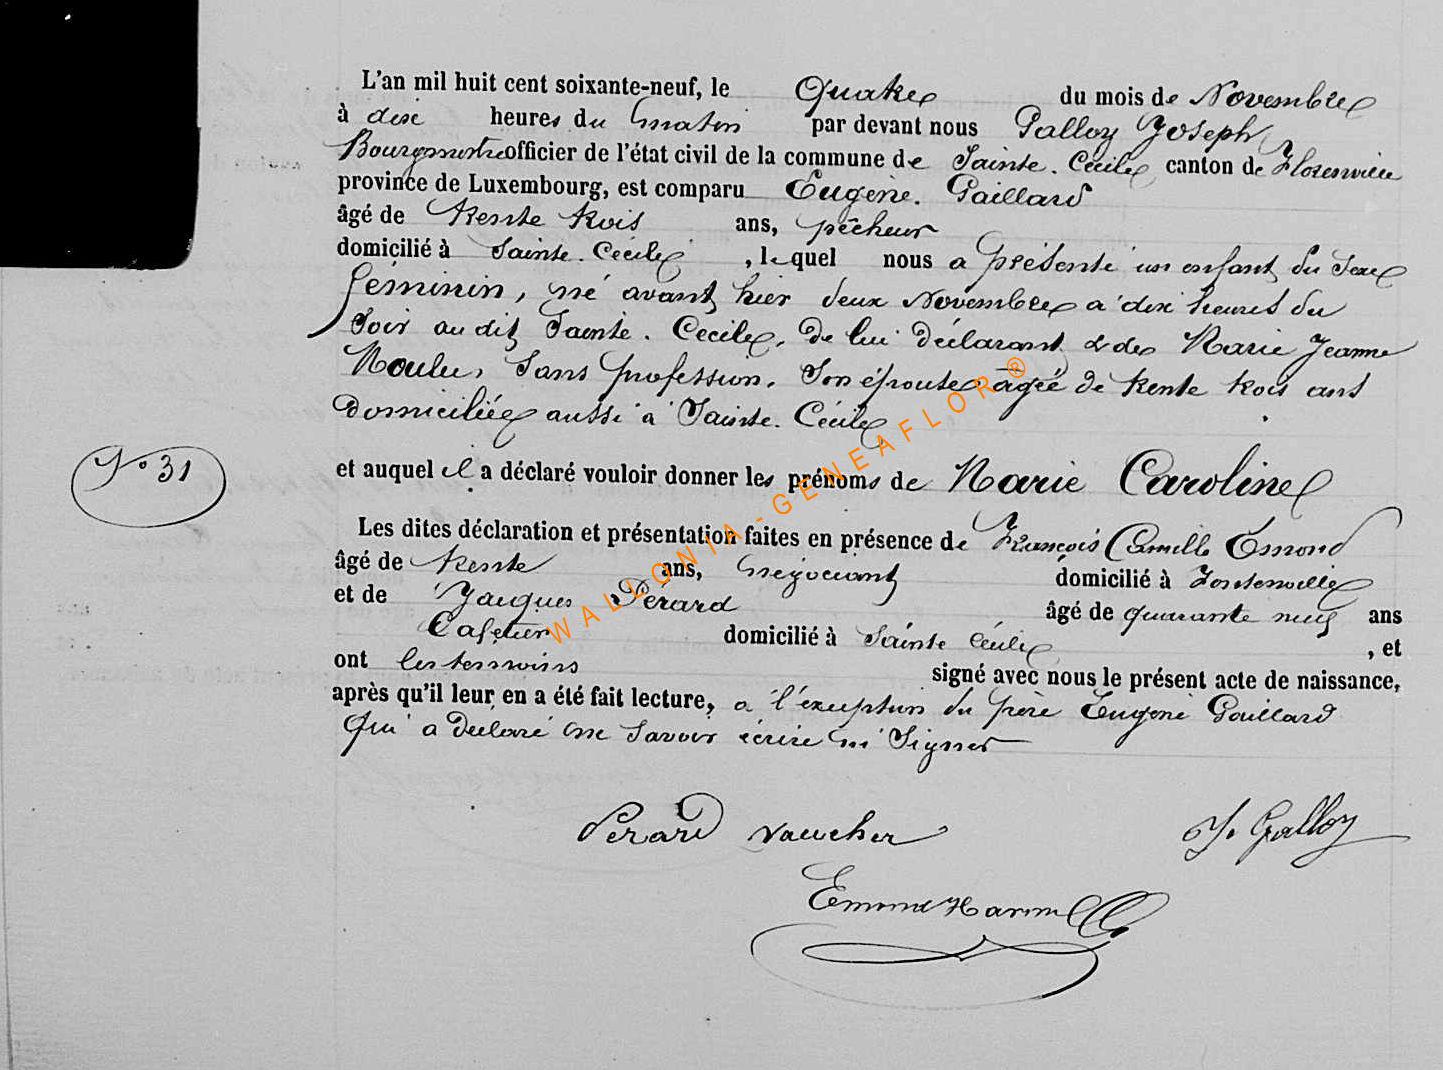 L'an mil huit cent soixante-neuf, le Quatre du mois de Novembre
à dix heures du matin par devant nous Galloy Joseph
Bourgmestre officier de l'état civil de la commune de Sainte. Cécile canton de Florenville
province de Luxembourg, est comparu Eugène. Gaillard
âgé de trente trois ans, pêcheur
domicilié à Sainte. Cécile, lequel nous a présenté un enfant du Sexe
féminin, né avant hier deux Novembre a dix heures du
Soir audit Sainte. Cécile, de lui déclarant & de Marie Jeanne
Moulu, Sans profession. Son épouse âgée de trente trois ans
Domiciliée aussi à Sainte. Cécile
N° 31
et auquel il a déclaré vouloir donner les prénoms de Marie Caroline
Les dites déclaration et présentation faites en présence de François Camille Emond
âgé de trente ans, négociant domicilié à Fontenoille
et de Jacques Pérard âgé de quarante neuf ans
Cafetier domicilié à Sainte Cécile, et
ont les temoins signé avec nous le présent acte de naissance,
après qu'il leur en a été fait lecture, a l'exception du père Eugene Gaillard
Qui a Déclaré ne Savoir écrire ni Signer
Perard Vaucher J. Galloy
Emond
WALLONIA-GENEAFLOR®